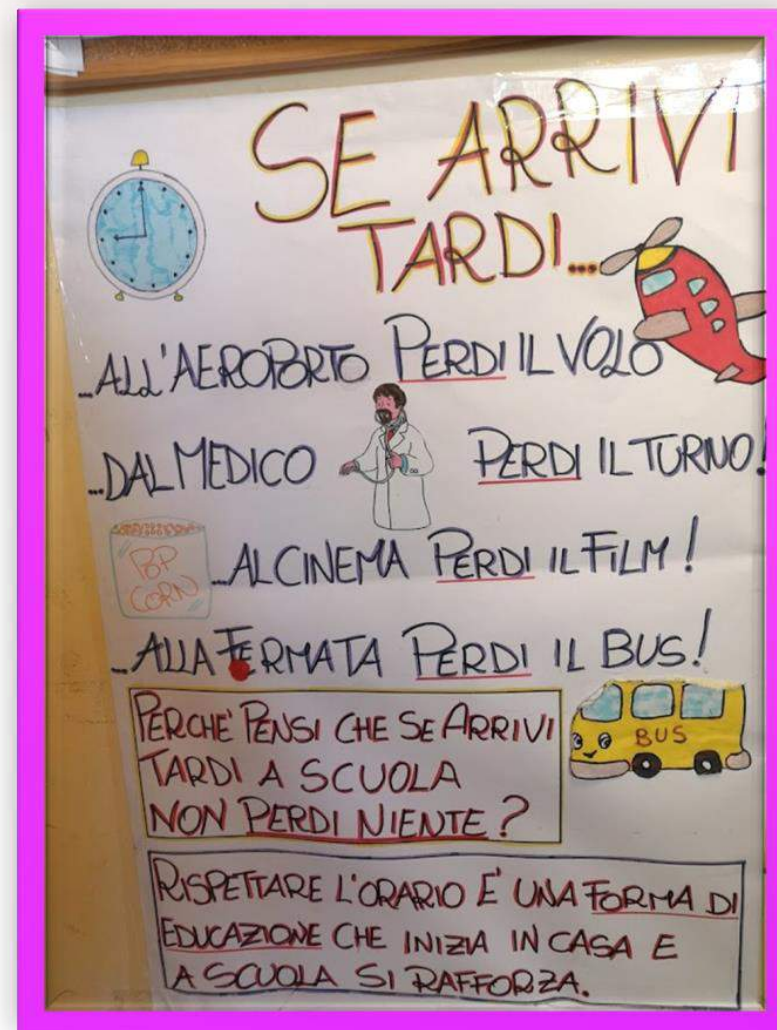 SE ARRIVI
TARDI...
...ALL'AEROPORTO PERDI IL VOLO
...DAL MEDICO PERDI IL TURNO!
POP
CORN
...AL CINEMA PERDI IL FILM!
...ALLA FERMATA PERDI IL BUS!
BUS
PERCHE' PENSI CHE SE ARRIVI
TARDI A SCUOLA
NON PERDI NIENTE?
RISPETTARE L'ORARIO E' UNA FORMA DI
EDUCAZIONE CHE INIZIA IN CASA E
A SCUOLA SI RAFFORZA.